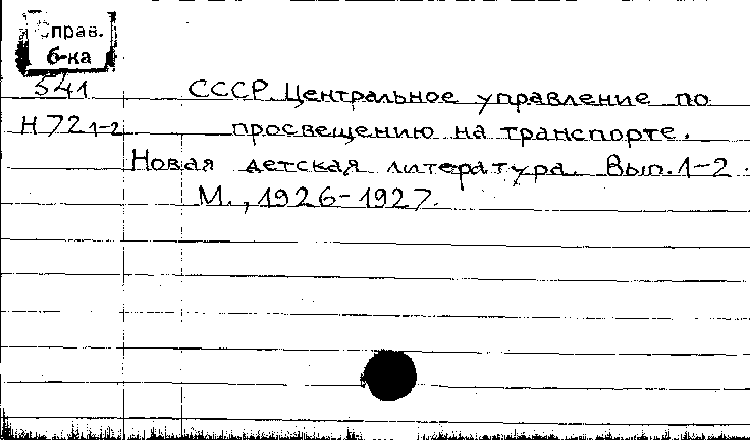 Справ.
б-ка
541 СССР. Центральное управление по
Н 72 1-2 просвещению на транспорте.
Новая детская литература. Вып. 1-2.
М., 1926-1927.